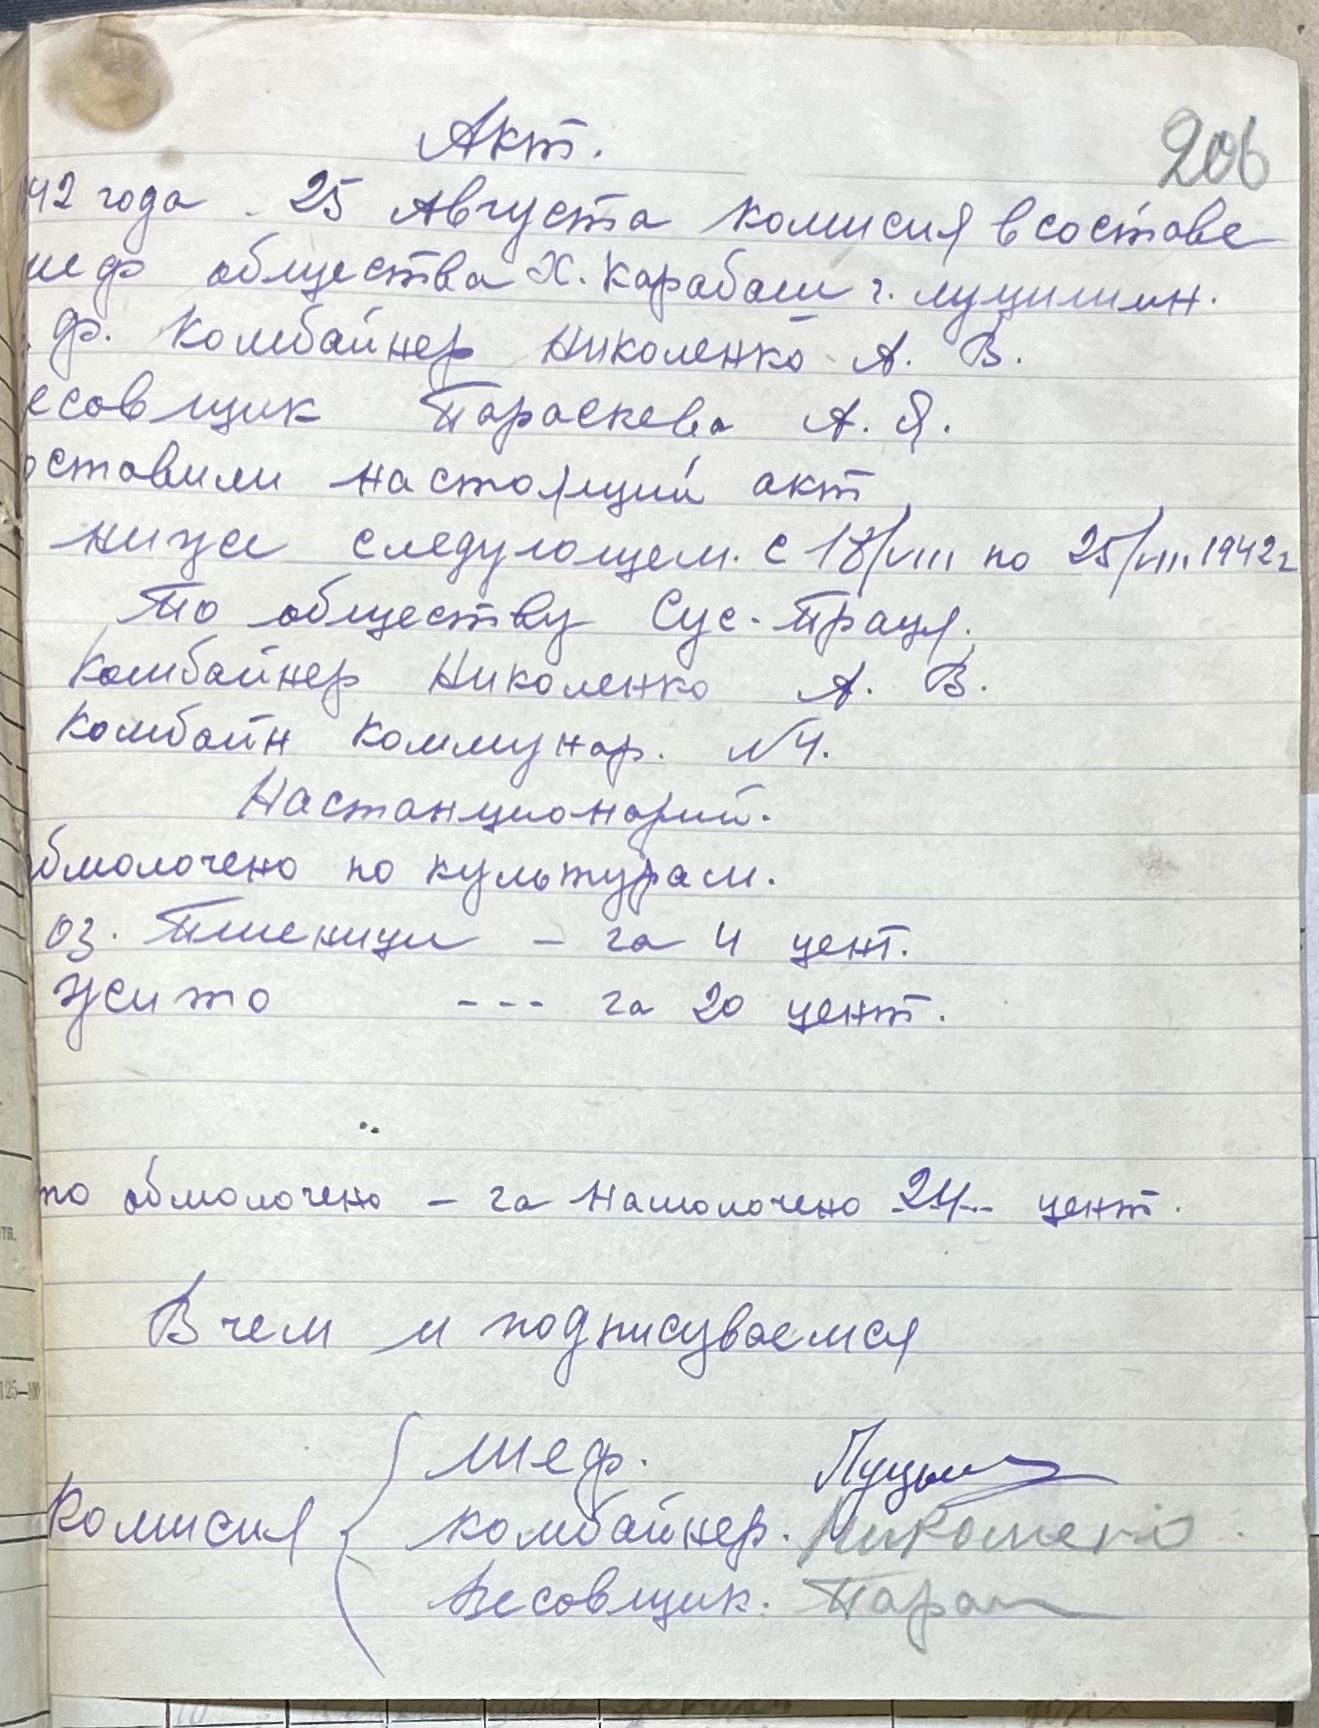 206
Акт.
942 года. 25 Августа комисия в составе
шеф общества Х. Карабаш г. Луцишин.
гр. Комбайнер Николенко А. В.
есовщик Параскева А. Я.
оставили настоящий акт
ниже следующем. с 18/VIII по 25/VIII. 1942 г
По обществу Сус-Праця.
Комбайнер Николенко А. В.
Комбайн Коммунар. N 4.
Настанционарий.
бмолочено по культурам.
оз. Пшеници – га 4 цент.
Жито --- га 20 цент.
то обмолочено – га намолочено 24 цент.
В чем и подписуваемся
Комисия
шеф. Луцыш
комбайнер. Николенко.
Весовщик. Пара
125–100